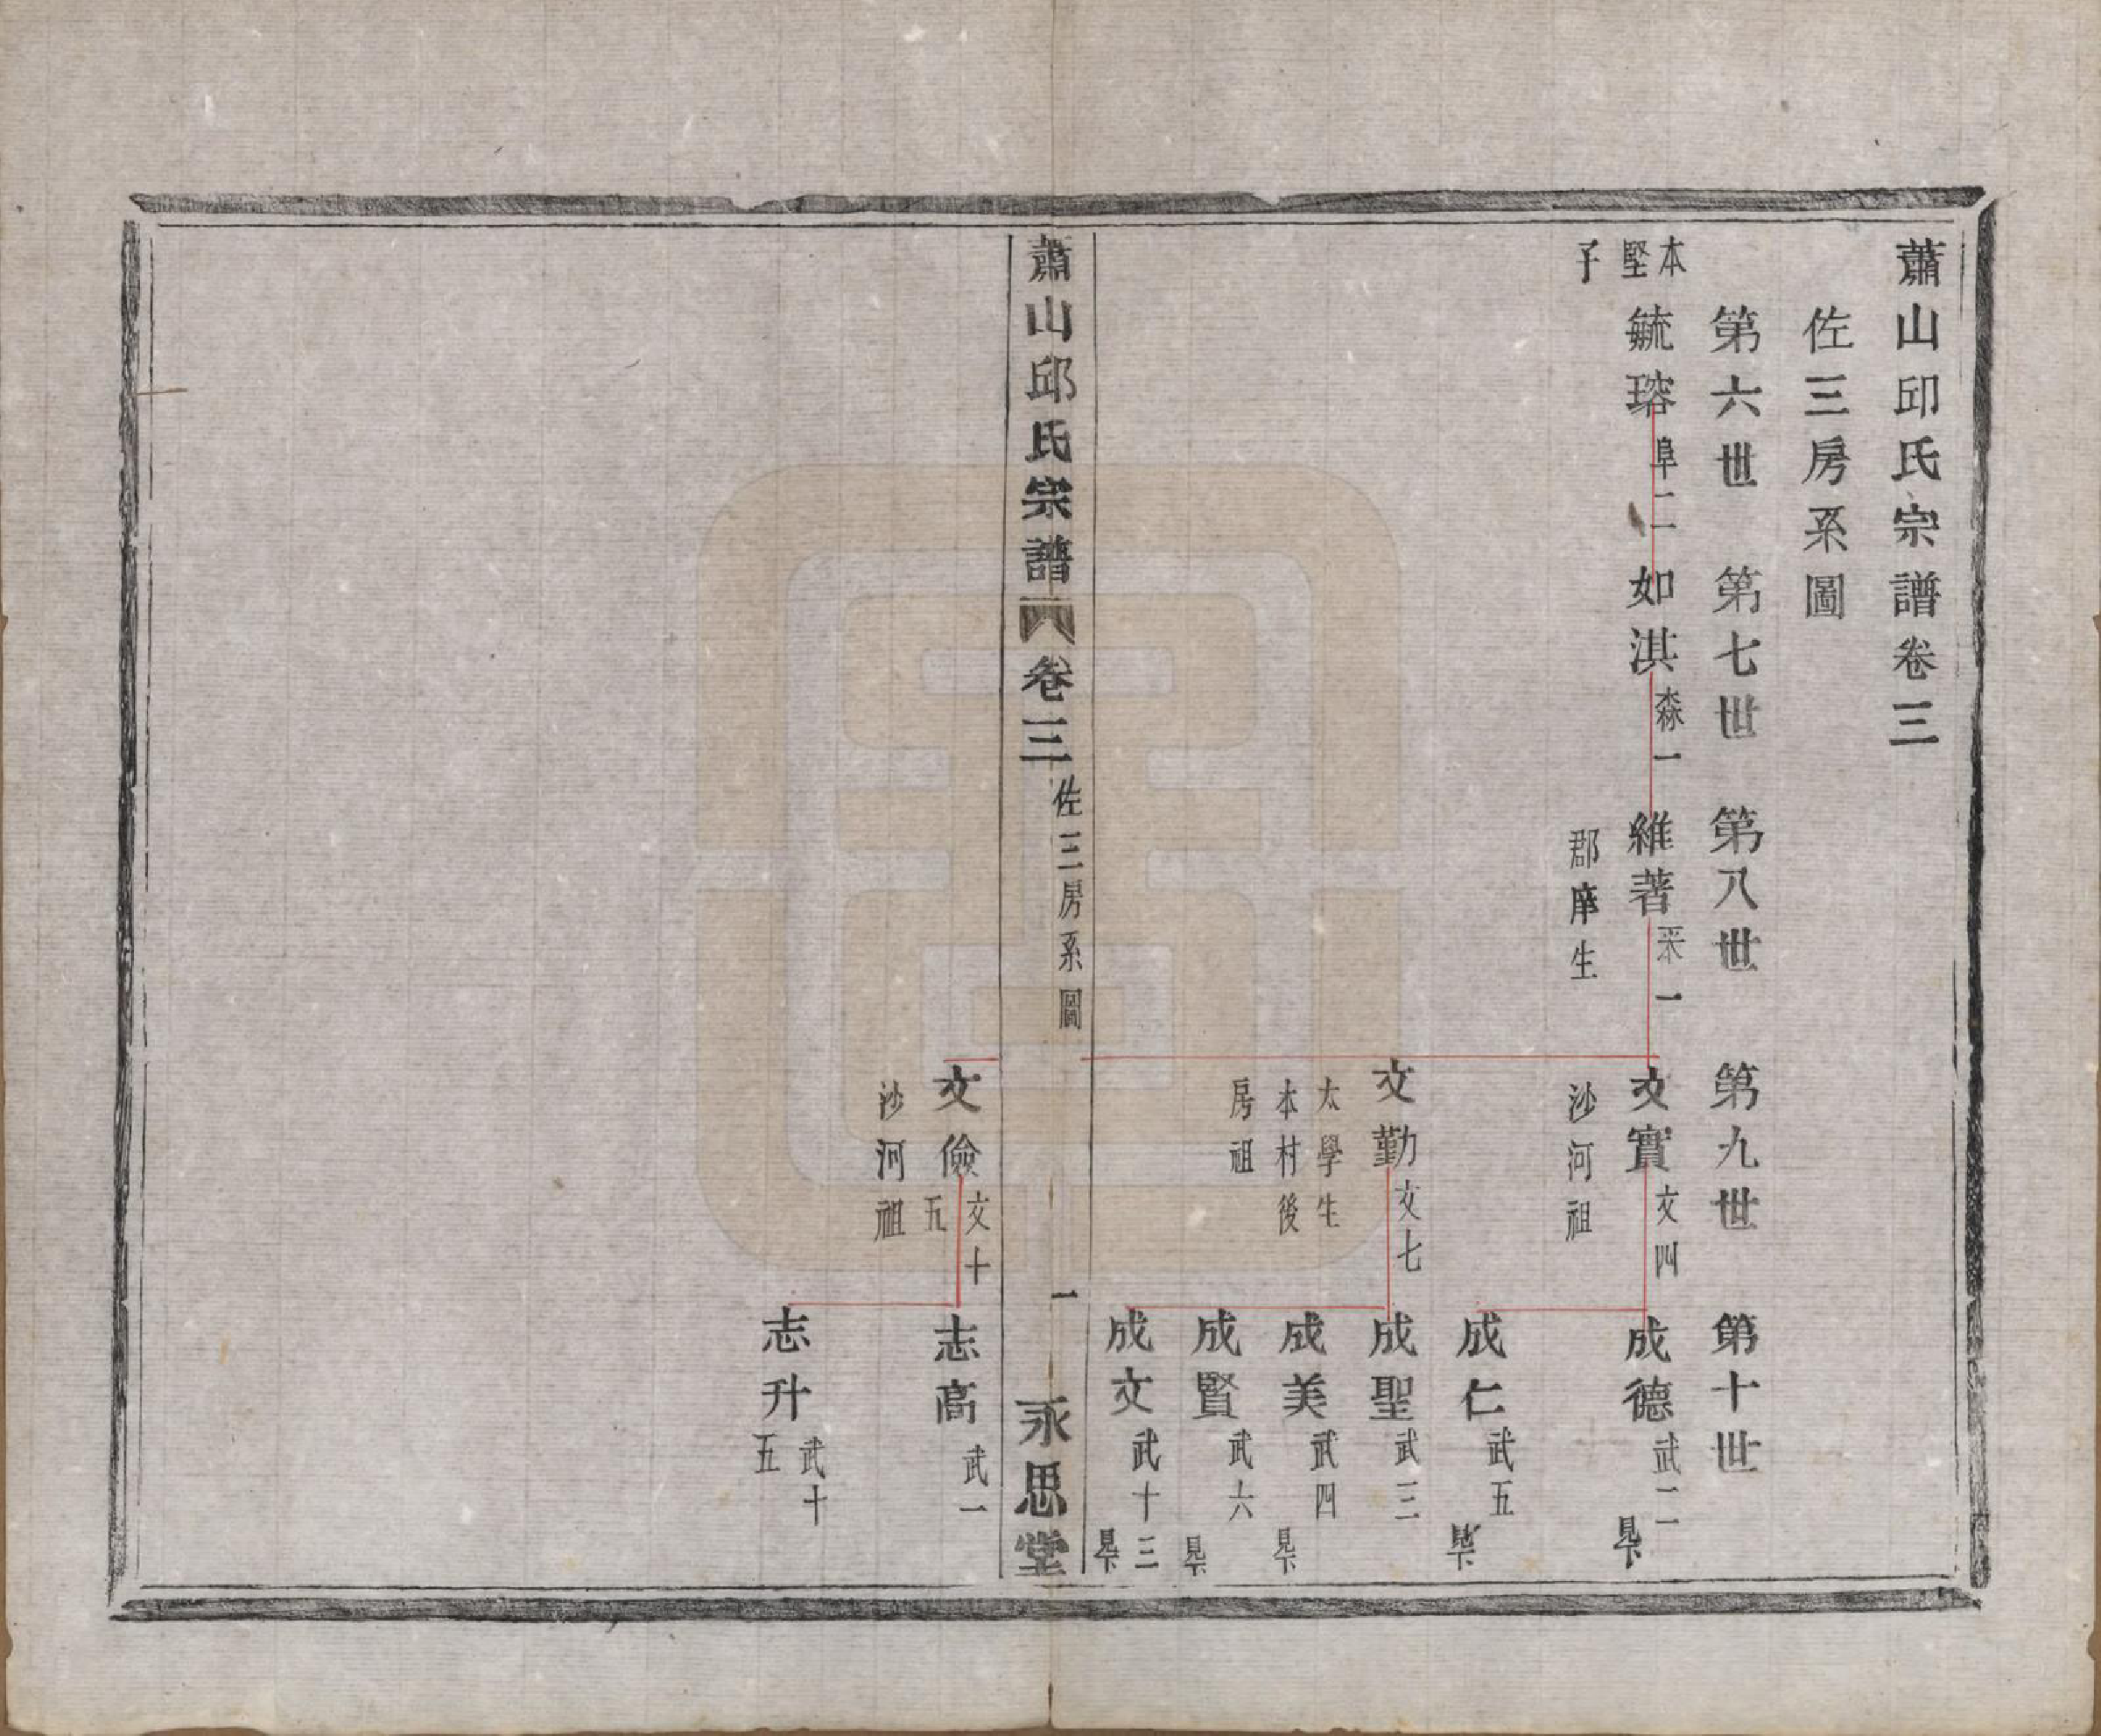 蕭山邱氏宗譜卷三
佐三房系圖
第六世 第七世 第八世 第九世 第十世
本堅子
毓瑢 阜二 如淇 森一 維著 一 文實 文四 成德 武二 見下
郡庠生
沙河祖
成仁 武五 見下
文勤 文七 成聖 武三
太學生本村後房祖
成美 武四 見下
成賢 武六 見下
成文 武十三 見下
蕭山邱氏宗譜 卷三 佐三房系圖 一 永思堂
文儉 文十五 志高 武一
沙河祖
志升 武十五